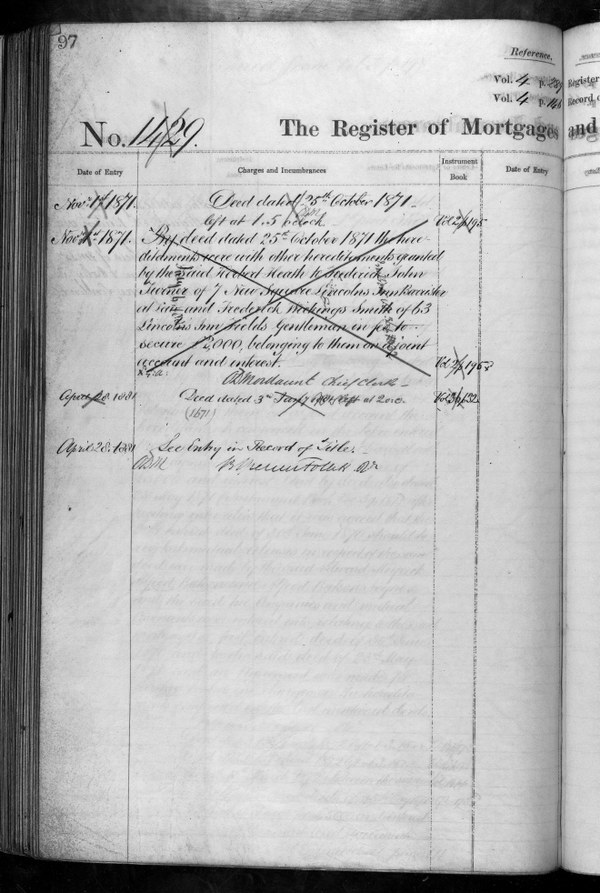 97
Reference.
Vol. 4 p. 
Vol. 4 p. 
No. 1429. The Register of Mortgages and
Register
Record
Date of Entry Charges and Incumbrances Instrument Book Date of Entry
Nov. 1871. Deed dated 25th October 1871
left at 1.5 o'clock Vol 2/p195
Nov. 1871. By deed dated 25th October 1871 the here-
ditaments were with other hereditaments granted
by the said Herbert Heath to Frederick John
of 7 New Square Lincolns Inn Barrister
at law and Frederick Smith of 63
Lincolns Inn Fields Gentleman in fee to
secure £2,000, belonging to them on a joint
account and interest. 
A Mordaunt Chief Clerk
April 28 1881 Deed dated 3rd left at
(1671)
April 28. 1881 See Entry in Record of Title